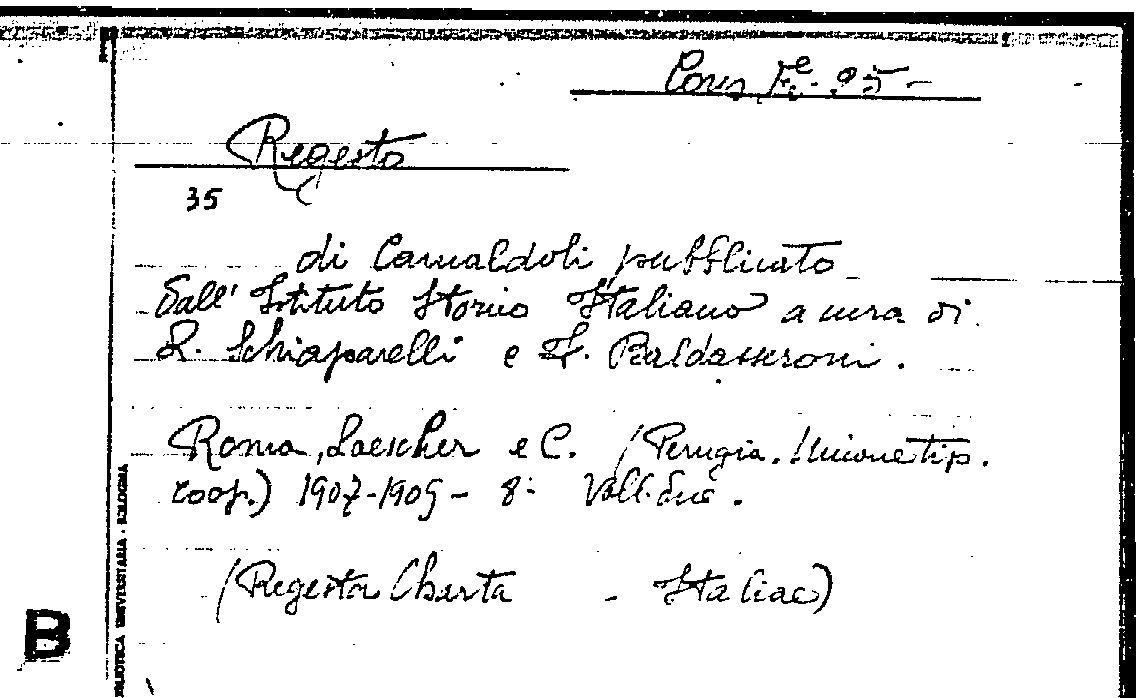 Cons. Fe. 95-
Regesto
35
di Camaldoli pubblicato
dall' Istituto Storico Italiano a cura di
L. Schiaparelli e F. Baldasseroni.
Roma, Loescher e C. (Perugia. Unione tip.
coop.) 1907-1909 - 8- Voll. due.
(Regesta Charta - Italiae)
B
BIBLIOTECA UNIVERSITARIA - BOLOGNA